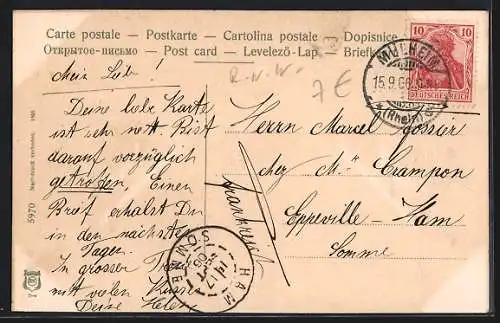 Carte postale – Postkarte – Cartolina postale – Dopisnice
Открытое-письмо – Post card – Levelező-Lap – Briefk
Mein Lieber!
R.-N.-W.
7€
Deine liebe Karte
ist sehr nett. Bist
darauf vorzüglich
getroffen, Einen
Brief erhälst Du
in den nächsten
Tagen.
In grosser Treue
mit vielen Küssen
Deine Helene
Herrn Marcel Gossier
chez Mr Crampon
Eppeville – Ham
Somme
Frankreich
10 10
DEUTSCHES REICH
MÜLHEIM
15.9.06
(Rhein)
HAM
SOMME
5970
Nachdruck verboten